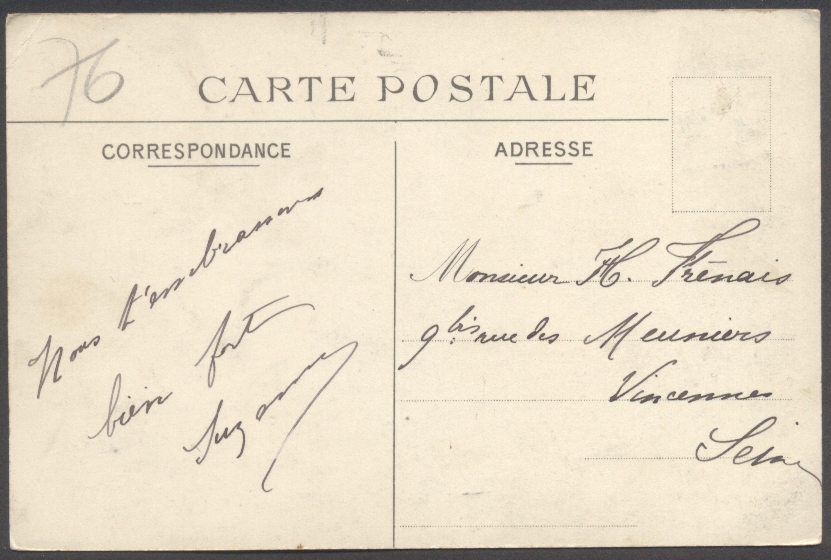 76
CARTE POSTALE
CORRESPONDANCE
Nous t'embrassons
bien fort
Suzanne
ADRESSE
Monsieur H. Frénais
9 bis rue des Meuniers
Vincennes
Seine